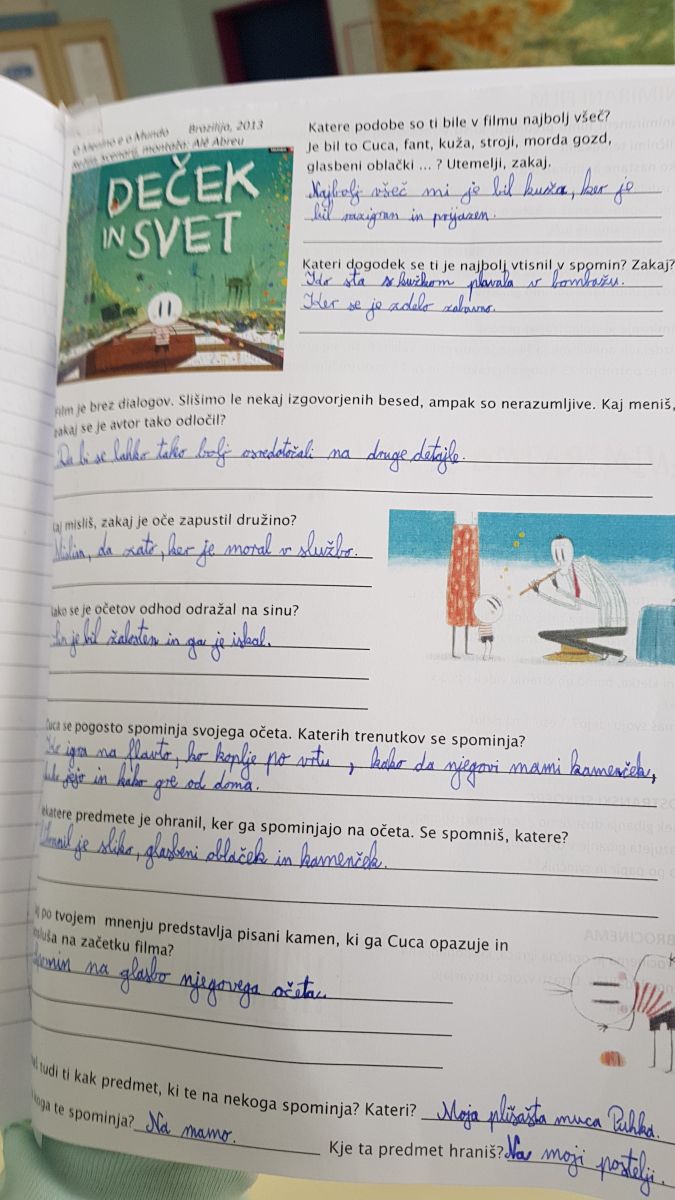 O Menino e o Mundo Brazilija, 2013
Režija, scenarij, montaža: Alê Abreu
DEČEK
IN SVET
Katere podobe so ti bile v filmu najbolj všeč?
Je bil to Cuca, fant, kuža, stroji, morda gozd,
glasbeni oblački ... ? Utemelji, zakaj.
Najbolj všeč mi je bil kuža, ker je
bil razigran in prijazen.
Kateri dogodek se ti je najbolj vtisnil v spomin? Zakaj?
Ko sta s kužkom plavala v bombažu.
Ker se je zdelo zabavno.
Film je brez dialogov. Slišimo le nekaj izgovorjenih besed, ampak so nerazumljive. Kaj meniš,
zakaj se je avtor tako odločil?
Da bi se lahko tako bolj osredotočali na druge detajle.
Kaj misliš, zakaj je oče zapustil družino?
Mislim, da zato, ker je moral v službo.
Kako se je očetov odhod odražal na sinu?
Sin je bil žalosten in ga je iskal.
Cuca se pogosto spominja svojega očeta. Katerih trenutkov se spominja?
igra na flavto, ko koplje po vrtu, kako da njegovi mami kamenček,
kako jejo in kako gre od doma.
Nekatere predmete je ohranil, ker ga spominjajo na očeta. Se spomniš, katere?
Ohranil je sliko, glasbeni oblaček in kamenček.
po tvojem mnenju predstavlja pisani kamen, ki ga Cuca opazuje in
posluša na začetku filma?
Spomin na glasbo njegovega očeta.
tudi ti kak predmet, ki te na nekoga spominja? Kateri? Moja plišasta muca Puhka.
koga te spominja? Na mamo. Kje ta predmet hraniš? Na moji postelji.